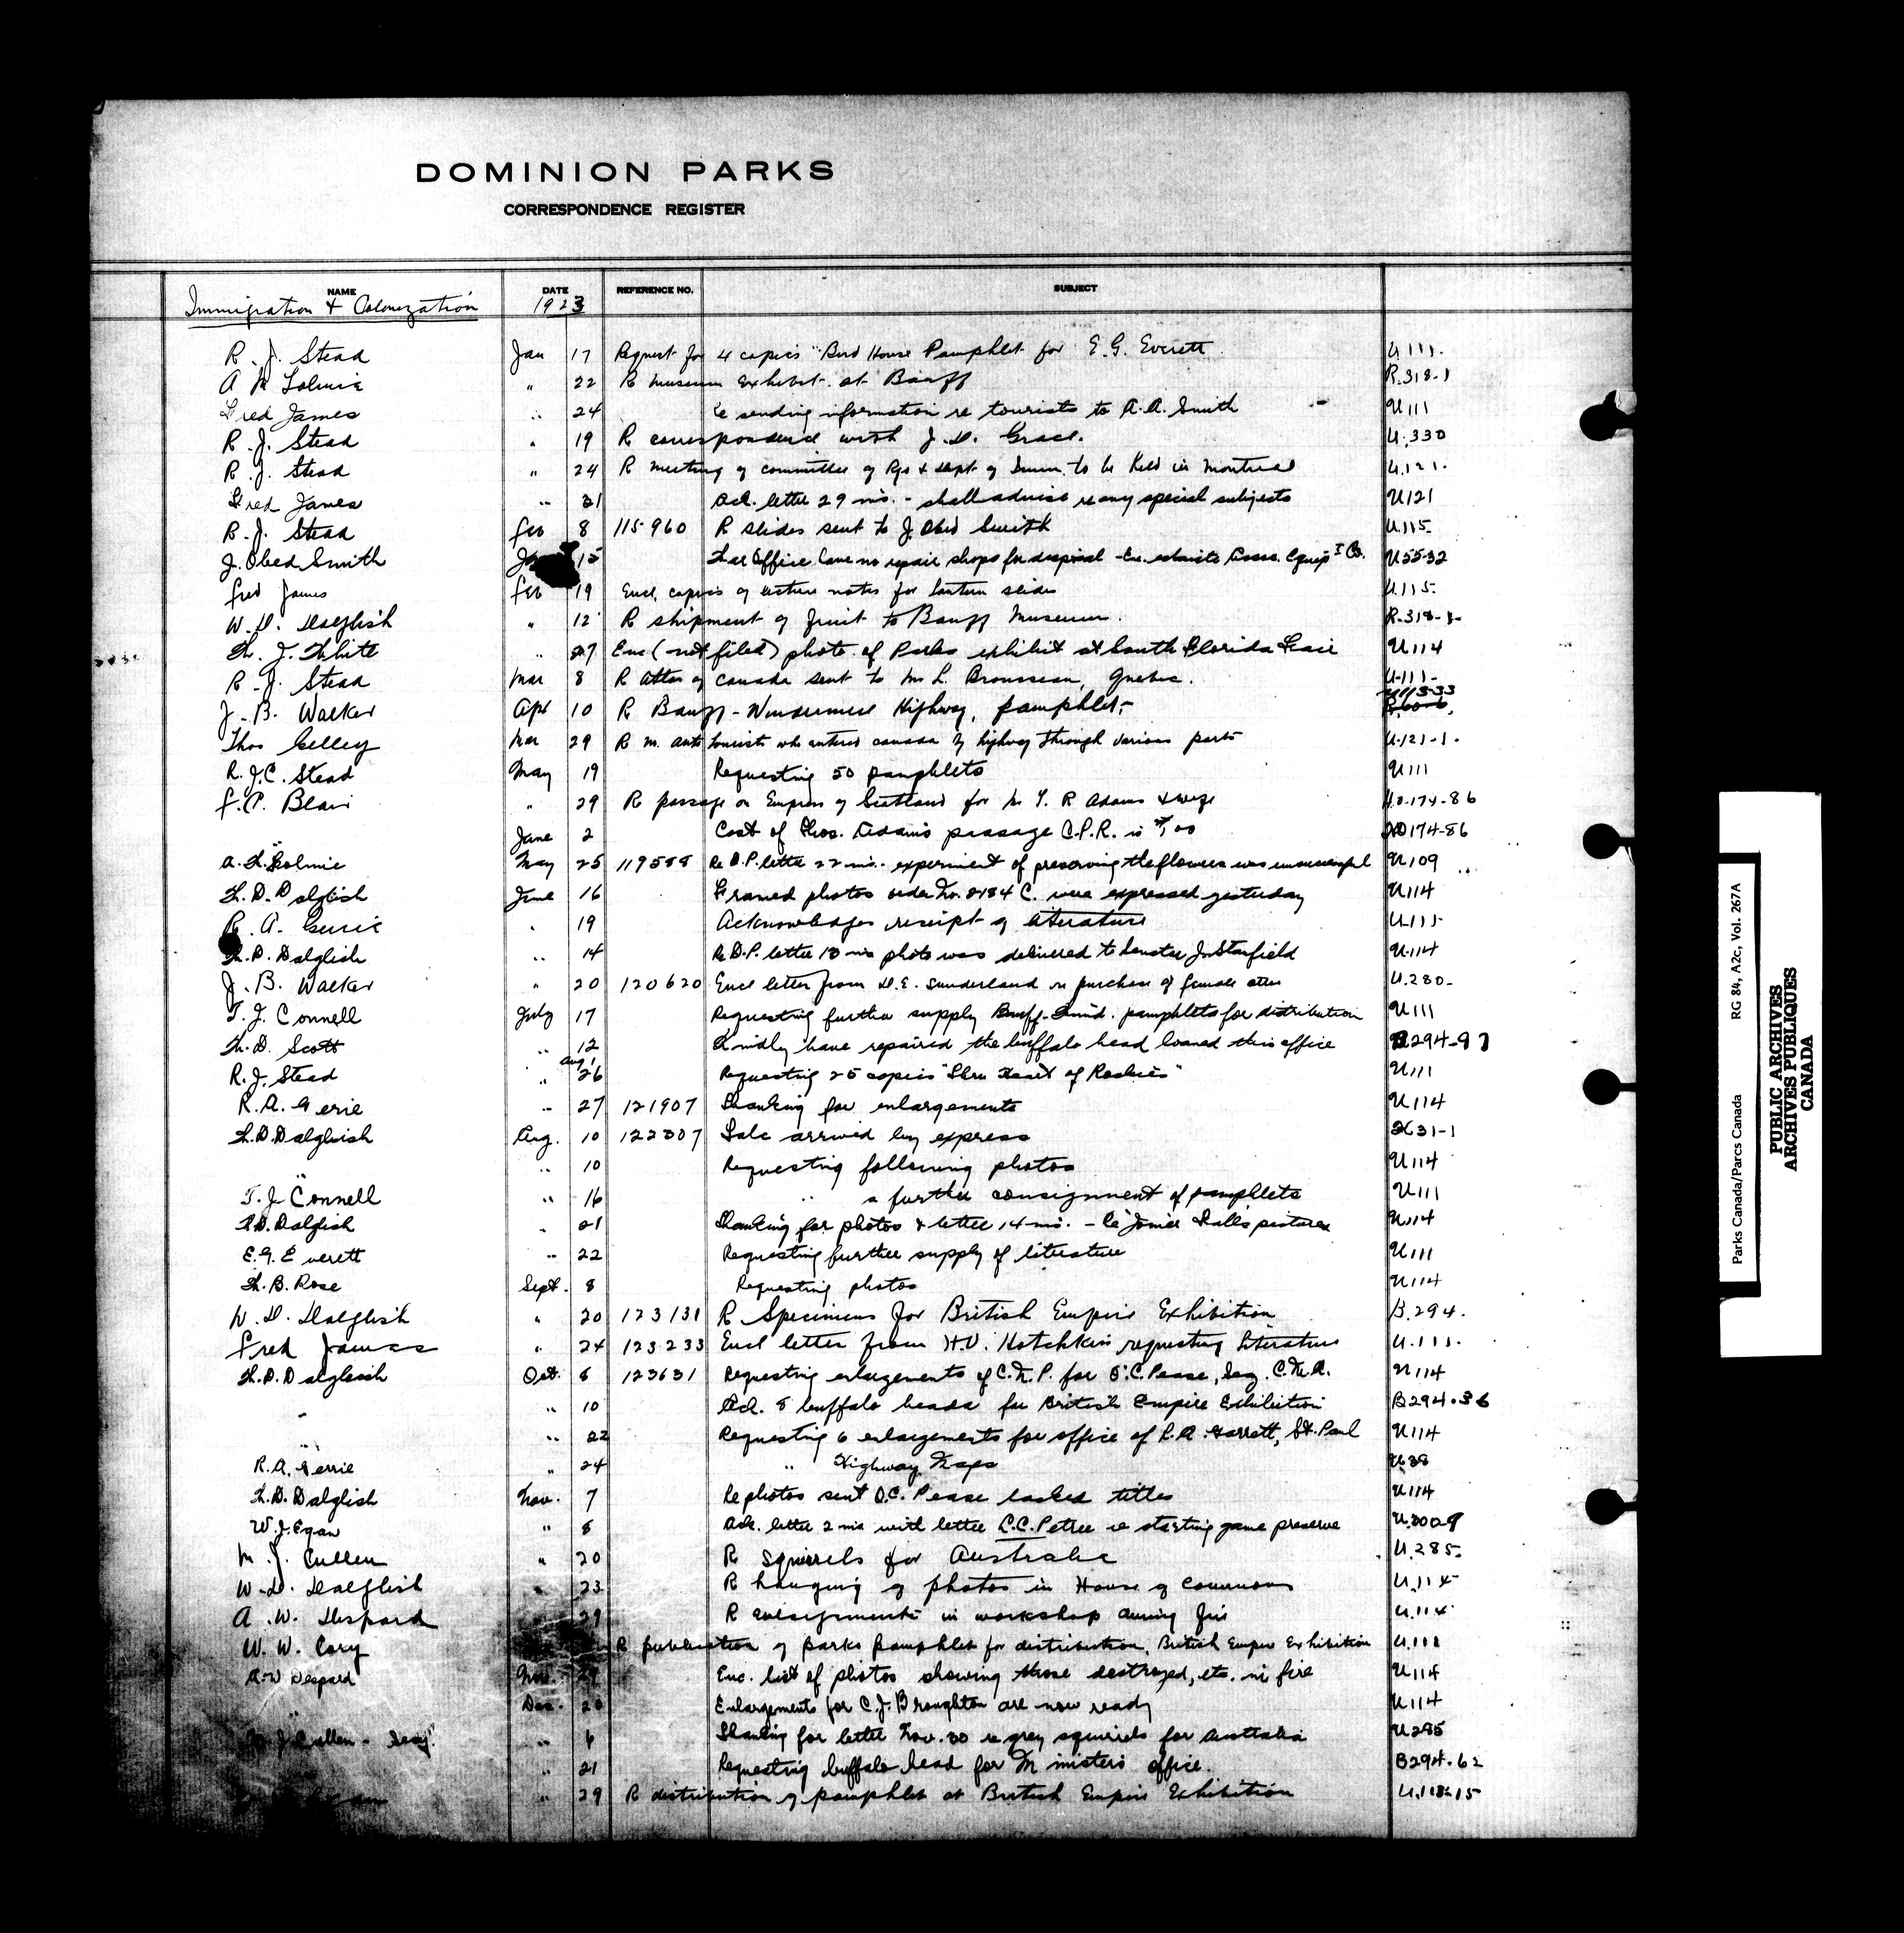 DOMINION PARKS
CORRESPONDENCE REGISTER
NAME DATE REFERENCE NO. SUBJECT
Immigration & Colonization 1923
R. J. Stead Jan 17 Request for 4 copies "Bird House Pamphlet for E. G. Everett U 111.
A Tolmie " 22 R museum exhibit at Banff R.318-1
Fred James " 24 re sending information re tourists to A. A. Smith U 111
R. J. Stead " 19 R correspondence with J. D. Grace. U.330
R. J. Stead " 24 R meeting of committee of Rys & Dept of Imm. to be held in Montreal U.121.
Fred James " 31 Ack. letter 29 ins. - shall advise re any special subjects U121
R. J. Stead Feb 8 115960 R slides sent to J Obed Smith U.115
J. Obed Smith 15 Office have no repair shops for disposal U55-32
Fred James Feb 19 Encl. copies of lecture notes for lantern slides U.115.
W. D. Dalglish " 12 R shipment of fruit to Banff Museum. R.318-1-
J. White " 27 Enc (not filed) photo of Parks exhibit at South Florida Fair U114
R. J. Stead Mar 8 R Atlas of Canada sent to Mr L. Brousseau, Quebec. U-111-
J. B. Walker Apr 10 R Banff-Windermere Highway, pamphlet- U113-33
Thos Gelley Mar 29 R m. auto tourists who entered Canada by highway through various ports U-121-1.
R. J. C. Stead May 19 Requesting 50 pamphlets U111
F. C. Blair " 29 R passage on Empress of Scotland for Mr T. R Adams & wife 174-86
" June 2 Cost of Thos. Adams passage C.P.R. is 174-86
Tolmie May 25 119588 Re D.P. letter 22 ins. experiment of preserving the flowers was unsuccessful U109
W. D. Dalglish June 16 Framed photos order No. 2184 C. were expressed yesterday U114
R. A. Gerrie " 19 Acknowledges receipt of literature U-111-
W. D. Dalglish " 14 Re D.P. letter 13 ins photo was delivered to Senator J. Stanfield U.114
J. B. Walker " 20 120620 Encl letter from D. E. Sunderland re purchase of female otter U.280-
T. J. Connell July 17 Requesting further supply Banff-Wind. pamphlets for distribution U111
W. D. Scott " 12 Kindly have repaired the buffalo head loaned this office B294-97
R. J. Stead " Aug 1 26 Requesting 25 copies "Thru Heart of Rockies" U111
R. A. Gerie " 27 121907 Thanking for enlargements U114
W. D. Dalglish Aug. 10 122307 arrived by express
" " 10 Requesting following photos U114
T. J. Connell " 16 " a further consignment of pamphlets U111
W. D. Dalglish " 21 Thanking for photos & letter 14 ins. - Re pictures U114
E. G. Everett " 22 Requesting further supply of literature U111
B. Rose Sept. 8 Requesting photos U114
W. D. Dalglish " 20 123131 R Specimens for British Empire Exhibition B.294.
Fred James " 24 123233 Encl letter from H. V. Hotchkin requesting literature U.111.
W. D. Dalglish Oct. 8 123631 Requesting enlargements of C.N.P. for O. C. Pease, U114
" " 10 Ack. 8 buffalo heads for British Empire Exhibition B294.36
" 22 Requesting 6 enlargements for office of R. A. Garrett, St. Paul U114
R. A. Gerrie " 24 " Highway Maps U.38
W. D. Dalglish Nov. 7 Re photos sent O. C. Pease lacked titles U114
W. J. Egan " 8 Ack. letter 2 ins with letter C. C. Petree re starting game preserve U.300-9
M. J. Cullen " 20 R squirrels for Australia U.285-
W. D. Dalglish " 23 R hanging of photos in House of Commons U.114
A. W. Despard 29 R enlargements in workshop during fire U.114.
W. W. Cory R publication of parks pamphlet for distribution, British Empire Exhibition U.113
A. W Despard Nov. 29 Enc. list of photos showing those destroyed, etc. in fire U114
" Dec. 20 Enlargements for C. J. Broughton are now ready U114
J. Cullen - Secy. " 6 Thanking for letter Nov. 30 re grey squirrels for Australia U285
" 21 Requesting buffalo head for Ministers office. B294.62
" 29 R distribution of pamphlet at British Empire Exhibition U.113-15
Parks Canada/Parcs Canada RG 84, A2c, Vol. 267A
PUBLIC ARCHIVES
ARCHIVES PUBLIQUES
CANADA